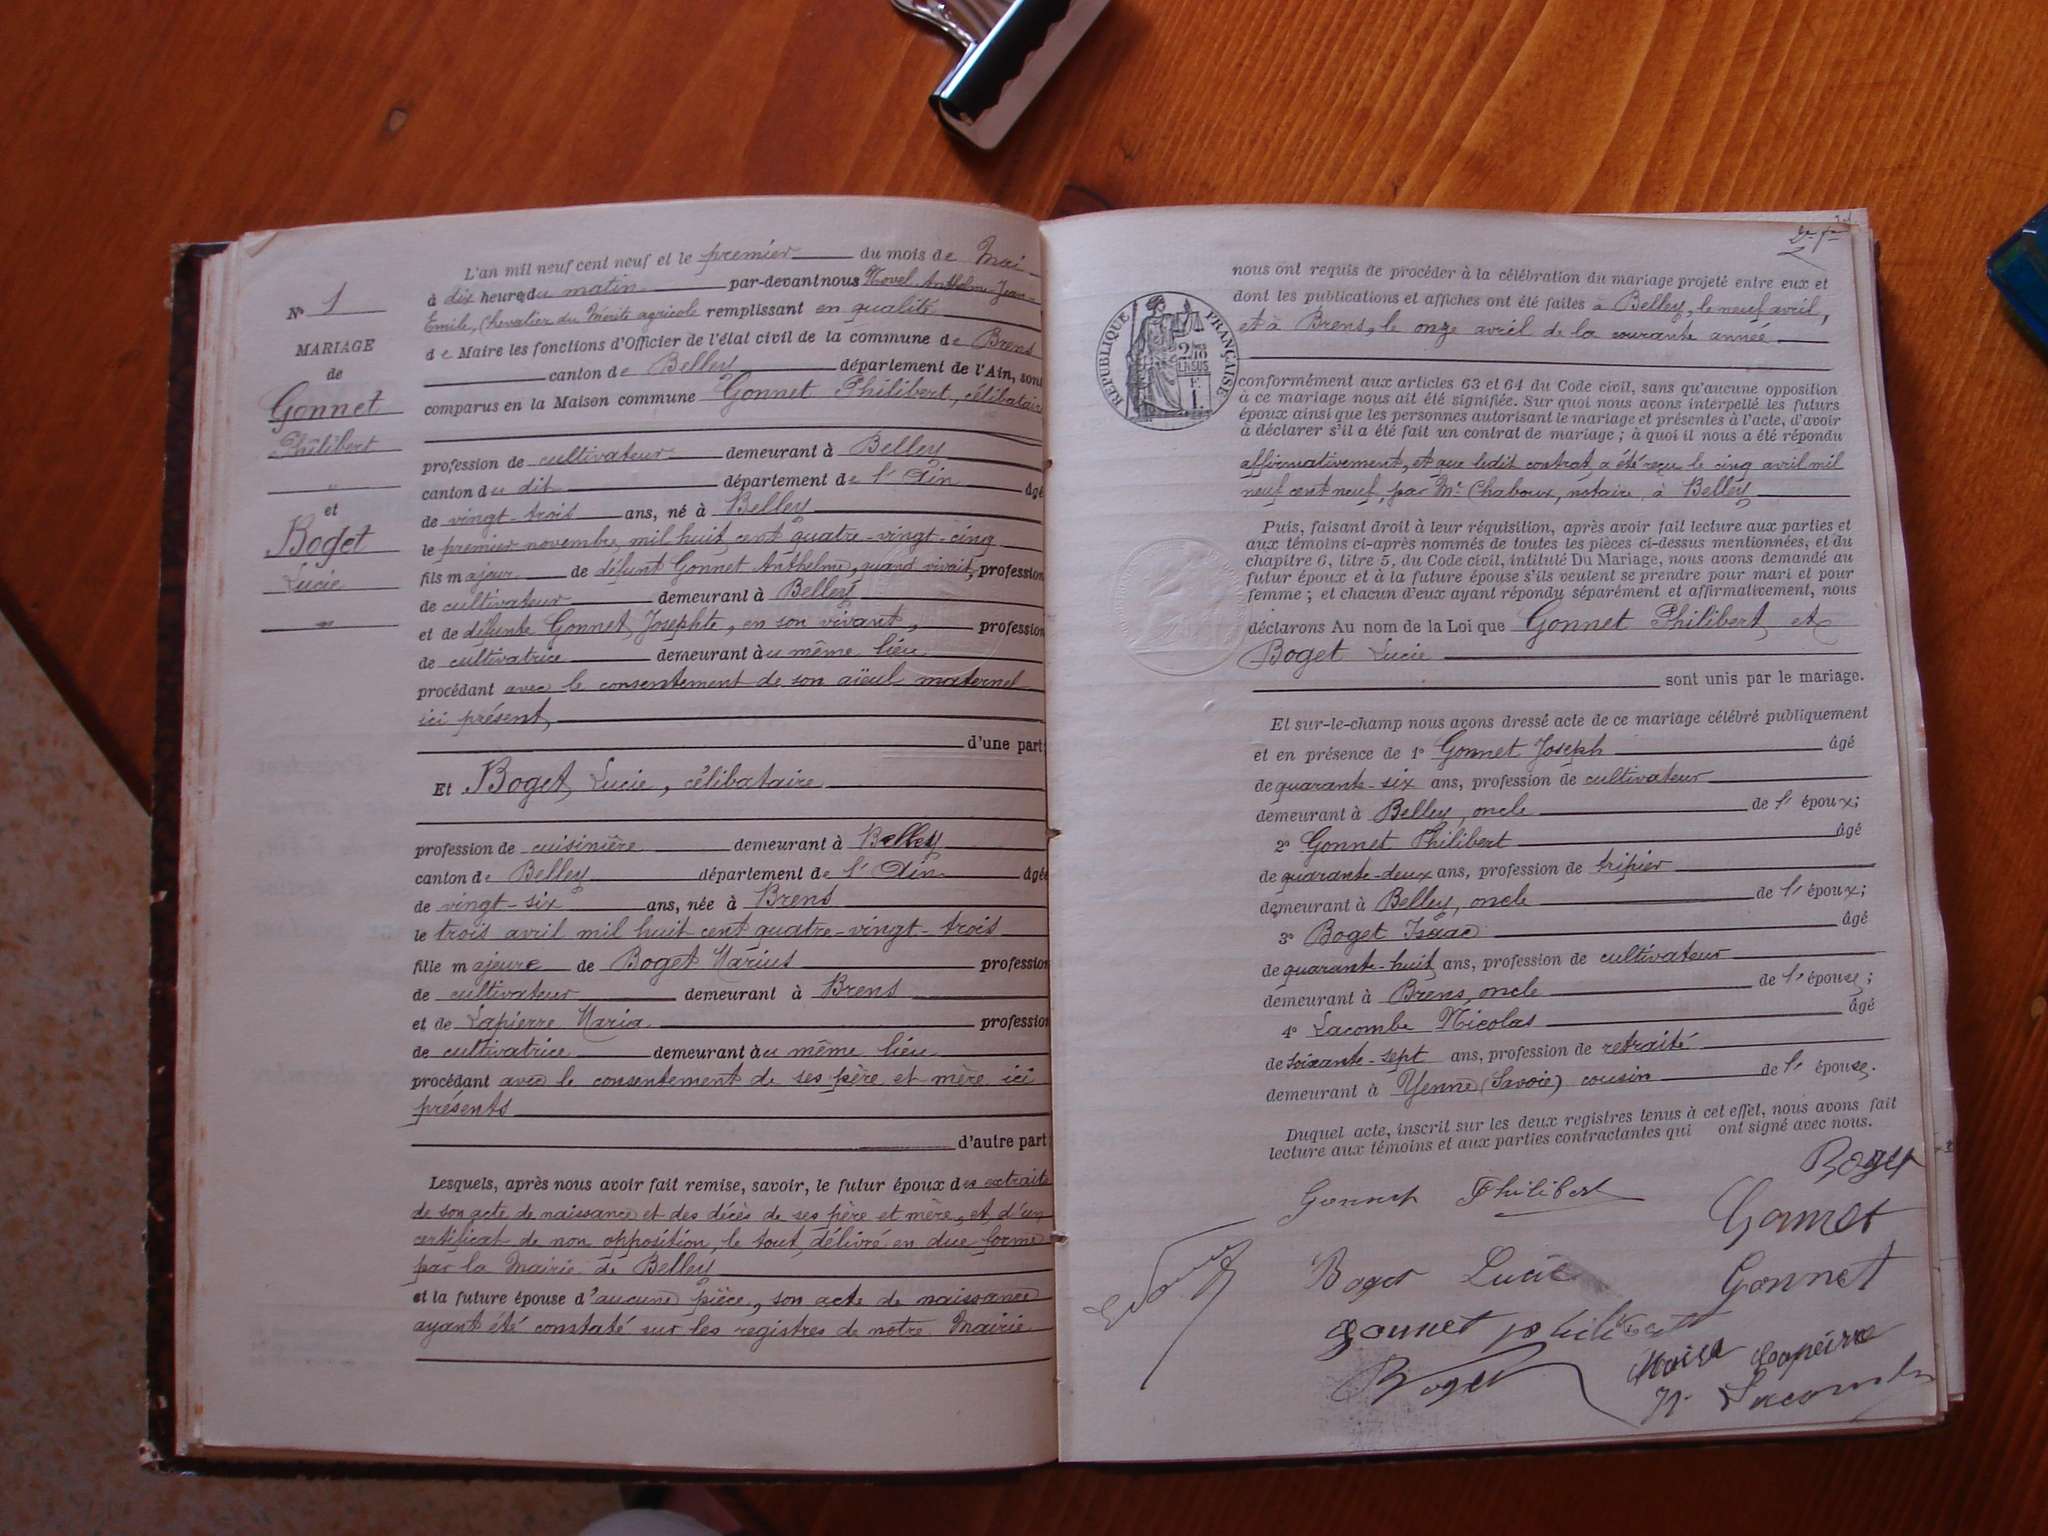 N° 1
MARIAGE
de
Gonnet
Philibert
et
Boget
Lucie
L'an mil neuf cent neuf et le premier du mois de Mai
à dix heures du matin par-devant nous Novel Anthelme Jean-
Emile, Chevalier du Mérite agricole remplissant en qualité
de Maire les fonctions d'Officier de l'état civil de la commune de Brens
canton de Belley département de l'Ain, sont
comparus en la Maison commune Gonnet Philibert, célibataire
profession de cultivateur demeurant à Belley
canton du dit département de l'Ain âgé
de vingt-trois ans, né à Belley
le premier novembre mil huit cent quatre-vingt-cinq
fils majeur de défunt Gonnet Anthelme, quand vivait, profession
de cultivateur demeurant à Belley
et de défunte Gonnet Josephte, en son vivant, profession
de cultivatrice demeurant au même lieu
procédant avec le consentement de son aïeul maternel
ici présent,
d'une part;
Et Boget Lucie, célibataire
profession de cuisinière demeurant à Belley
canton de Belley département de l'Ain âgée
de vingt-six ans, née à Brens
le trois avril mil huit cent quatre-vingt-trois
fille majeure de Boget Marius profession
de cultivateur demeurant à Brens
et de Lapierre Maria profession
de cultivatrice demeurant au même lieu
procédant avec le consentement de ses père et mère ici
présents
d'autre part;
Lesquels, après nous avoir fait remise, savoir, le futur époux des extraits
de son acte de naissance et des décès de ses père et mère, et d'un
certificat de non opposition, le tout délivré en due forme
par la Mairie de Belley
et la future épouse d'aucune pièce, son acte de naissance
ayant été constaté sur les registres de notre Mairie
nous ont requis de procéder à la célébration du mariage projeté entre eux et
dont les publications et affiches ont été faites à Belley, le neuf avril,
et à Brens, le onze avril de la courante année
RÉPUBLIQUE FRANÇAISE
2/10 EN SUS
1 F.
conformément aux articles 63 et 64 du Code civil, sans qu'aucune opposition
à ce mariage nous ait été signifiée. Sur quoi nous avons interpellé les futurs
époux ainsi que les personnes autorisant le mariage et présentes à l'acte, d'avoir
à déclarer s'il a été fait un contrat de mariage ; à quoi il nous a été répondu
affirmativement, et que ledit contrat a été reçu le cinq avril mil
neuf cent neuf, par Mᵉ Chaboux, notaire à Belley
Puis, faisant droit à leur réquisition, après avoir fait lecture aux parties et
aux témoins ci-après nommés de toutes les pièces ci-dessus mentionnées, et du
chapitre 6, titre 5, du Code civil, intitulé Du Mariage, nous avons demandé au
futur époux et à la future épouse s'ils veulent se prendre pour mari et pour
femme ; et chacun d'eux ayant répondu séparément et affirmativement, nous
déclarons Au nom de la Loi que Gonnet Philibert et
Boget Lucie
sont unis par le mariage.
Et sur-le-champ nous avons dressé acte de ce mariage célébré publiquement
et en présence de 1° Gonnet Joseph âgé
de quarante-six ans, profession de cultivateur
demeurant à Belley, oncle de l'époux;
2° Gonnet Philibert âgé
de quarante-deux ans, profession de tripier
demeurant à Belley, oncle de l'époux;
3° Boget Isaac âgé
de quarante-huit ans, profession de cultivateur
demeurant à Brens, oncle de l'épouse;
4° Lacombe Nicolas âgé
de soixante-sept ans, profession de retraité
demeurant à Yenne (Savoie) cousin de l'épouse.
Duquel acte, inscrit sur les deux registres tenus à cet effet, nous avons fait
lecture aux témoins et aux parties contractantes qui ont signé avec nous.
Boget
Gonnet Philibert
Gonnet
Boget Lucie
Gonnet
Gonnet philibert
Boget
Lapeirre
N. Lacombe